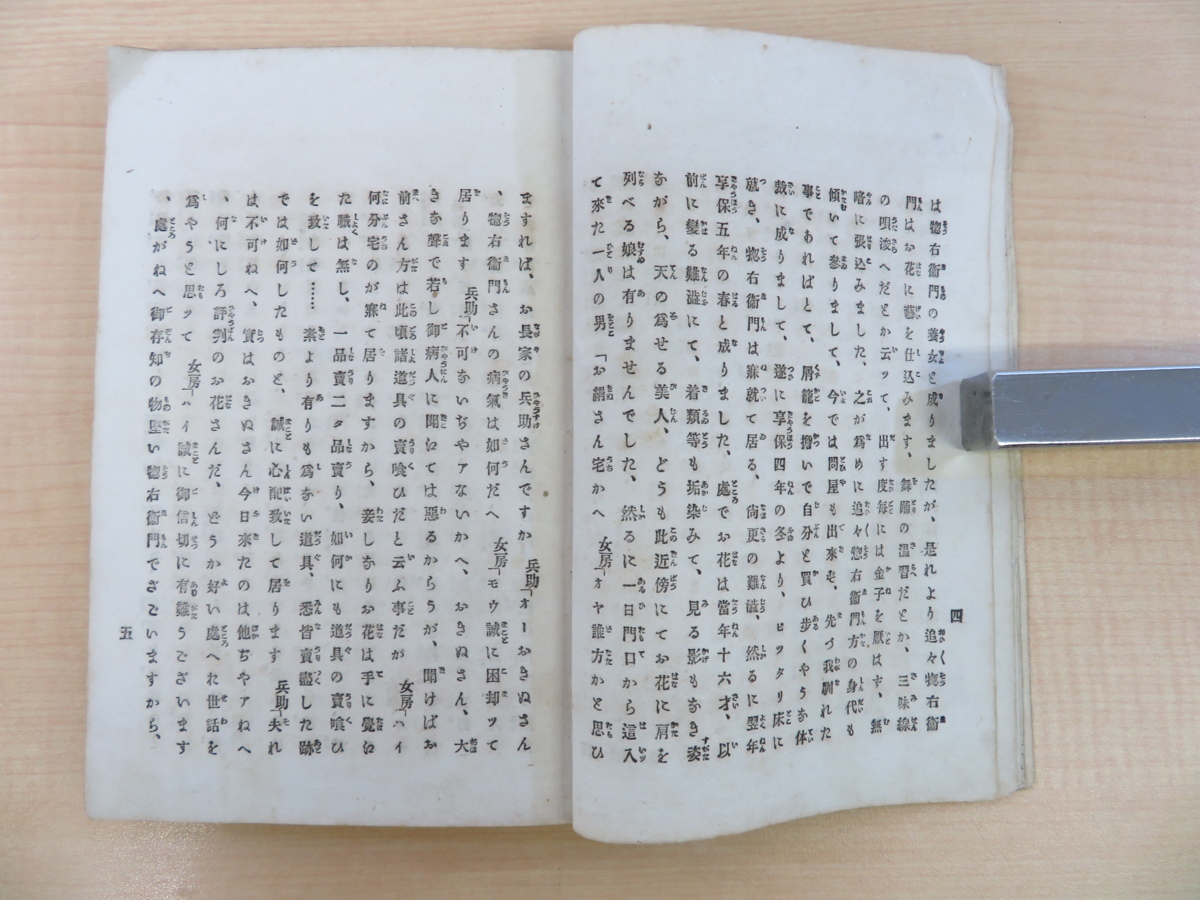 四
は惣右衛門の養女と成りましたが、是れより追々惣右衛
門はお花に藝を仕込みます、舞踊の温習だとか、三味線
の唄浚へだとか云ッて、出す度毎には金子を厭はず、無
暗に張込みました、之が為めに追々惣右衛門方の身代も
傾いて参りまして、今では問屋も出来ず、先づ我馴れた
事であればとて、屑籠を擔いで自分と買ひ歩くやうな体
裁に成りまして、遂に享保四年の冬より、ヒッタリ床に
就き、惣右衛門は寐就て居る、尚更の難澁、然るに翌年
享保五年の春と成りました、處でお花は當年十六才、以
前に變る難澁にて、着類等も垢染みて、見る影もなき姿
ながら、天の為せる美人、どうも此近傍にてお花に肩を
列べる娘は有りませんでした、然るに一日門口から這入
て來た一人の男「お絹さん宅かへ 女房「オヤ誰方かと思ひ
ますれば、お長家の兵助さんですか 兵助「オーおきぬさん
、惣右衛門さんの病氣は如何だへ 女房「モウ誠に困却ッて
居ります 兵助「不可ないぢやアないかへ、おきぬさん、大
きな聲で若し御病人に聞ゑては惡るからうが、聞けばお
前さん方は此頃諸道具の賣喰ひだと云ふ事だが 女房「ハイ
何分宅のが寐て居りますから、妾しなりお花は手に覺ゑ
た職は無し、一品賣二タ品賣り、如何にも道具の賣喰ひ
を致して…… 素より有りも為ない道具、悉皆賣盡した跡
では如何したものと、誠に心配致して居ります 兵助「夫れ
は不可ねへ、實はおきぬさん今日來たのは他ぢやアねへ
、何にしろ評判のお花さんだ、どうか好い處へれ世話を
為やうと思ッて 女房「ハイ誠に御信切に有難うございます
、處がねへ御存知の物堅い惣右衛門でございますから、
五